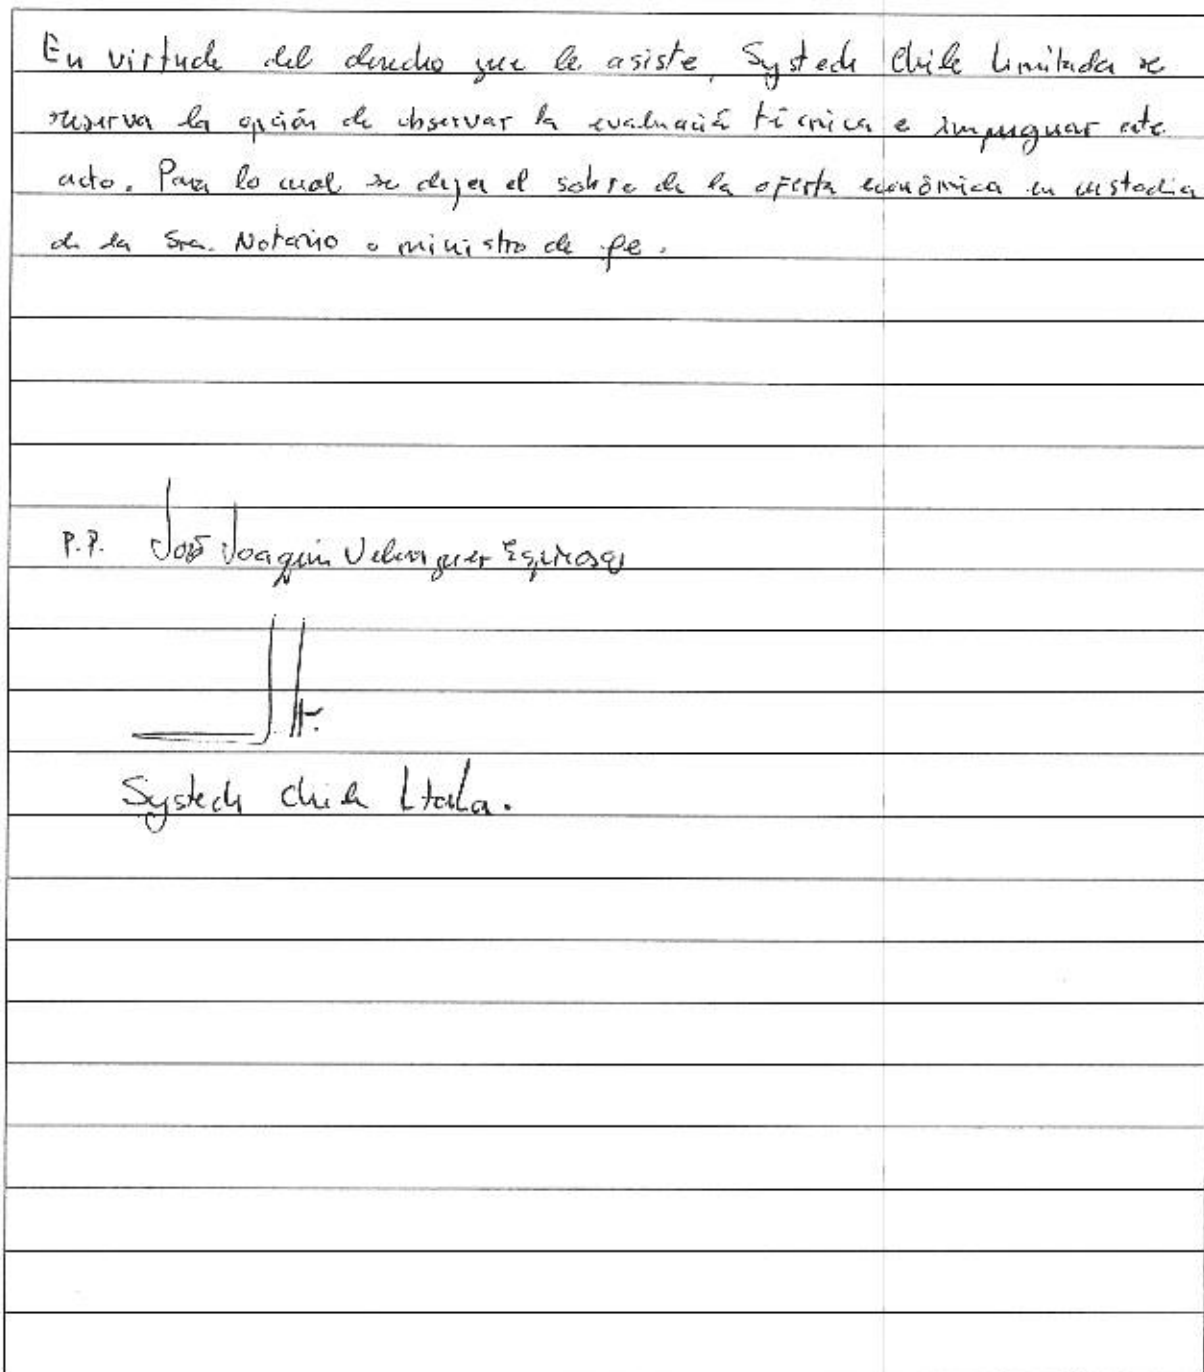 En virtude del derecho que le asiste, Systech Chile Limitada se
reserva la opción de observar la evaluación técnica e impugnar este
acto. Para lo cual se dejer el sobre de la oferta económica en custodia
de la Sra. Notario o ministro de fe.
P.P. José Joaquin
Systech Chile Ltda.